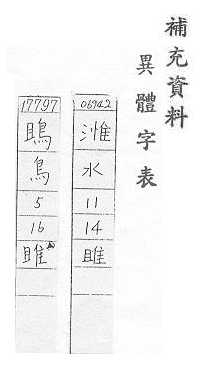 補充資料
異體字表
06942
水
11
14
雎
17797
鴡
鳥
5
16
雎